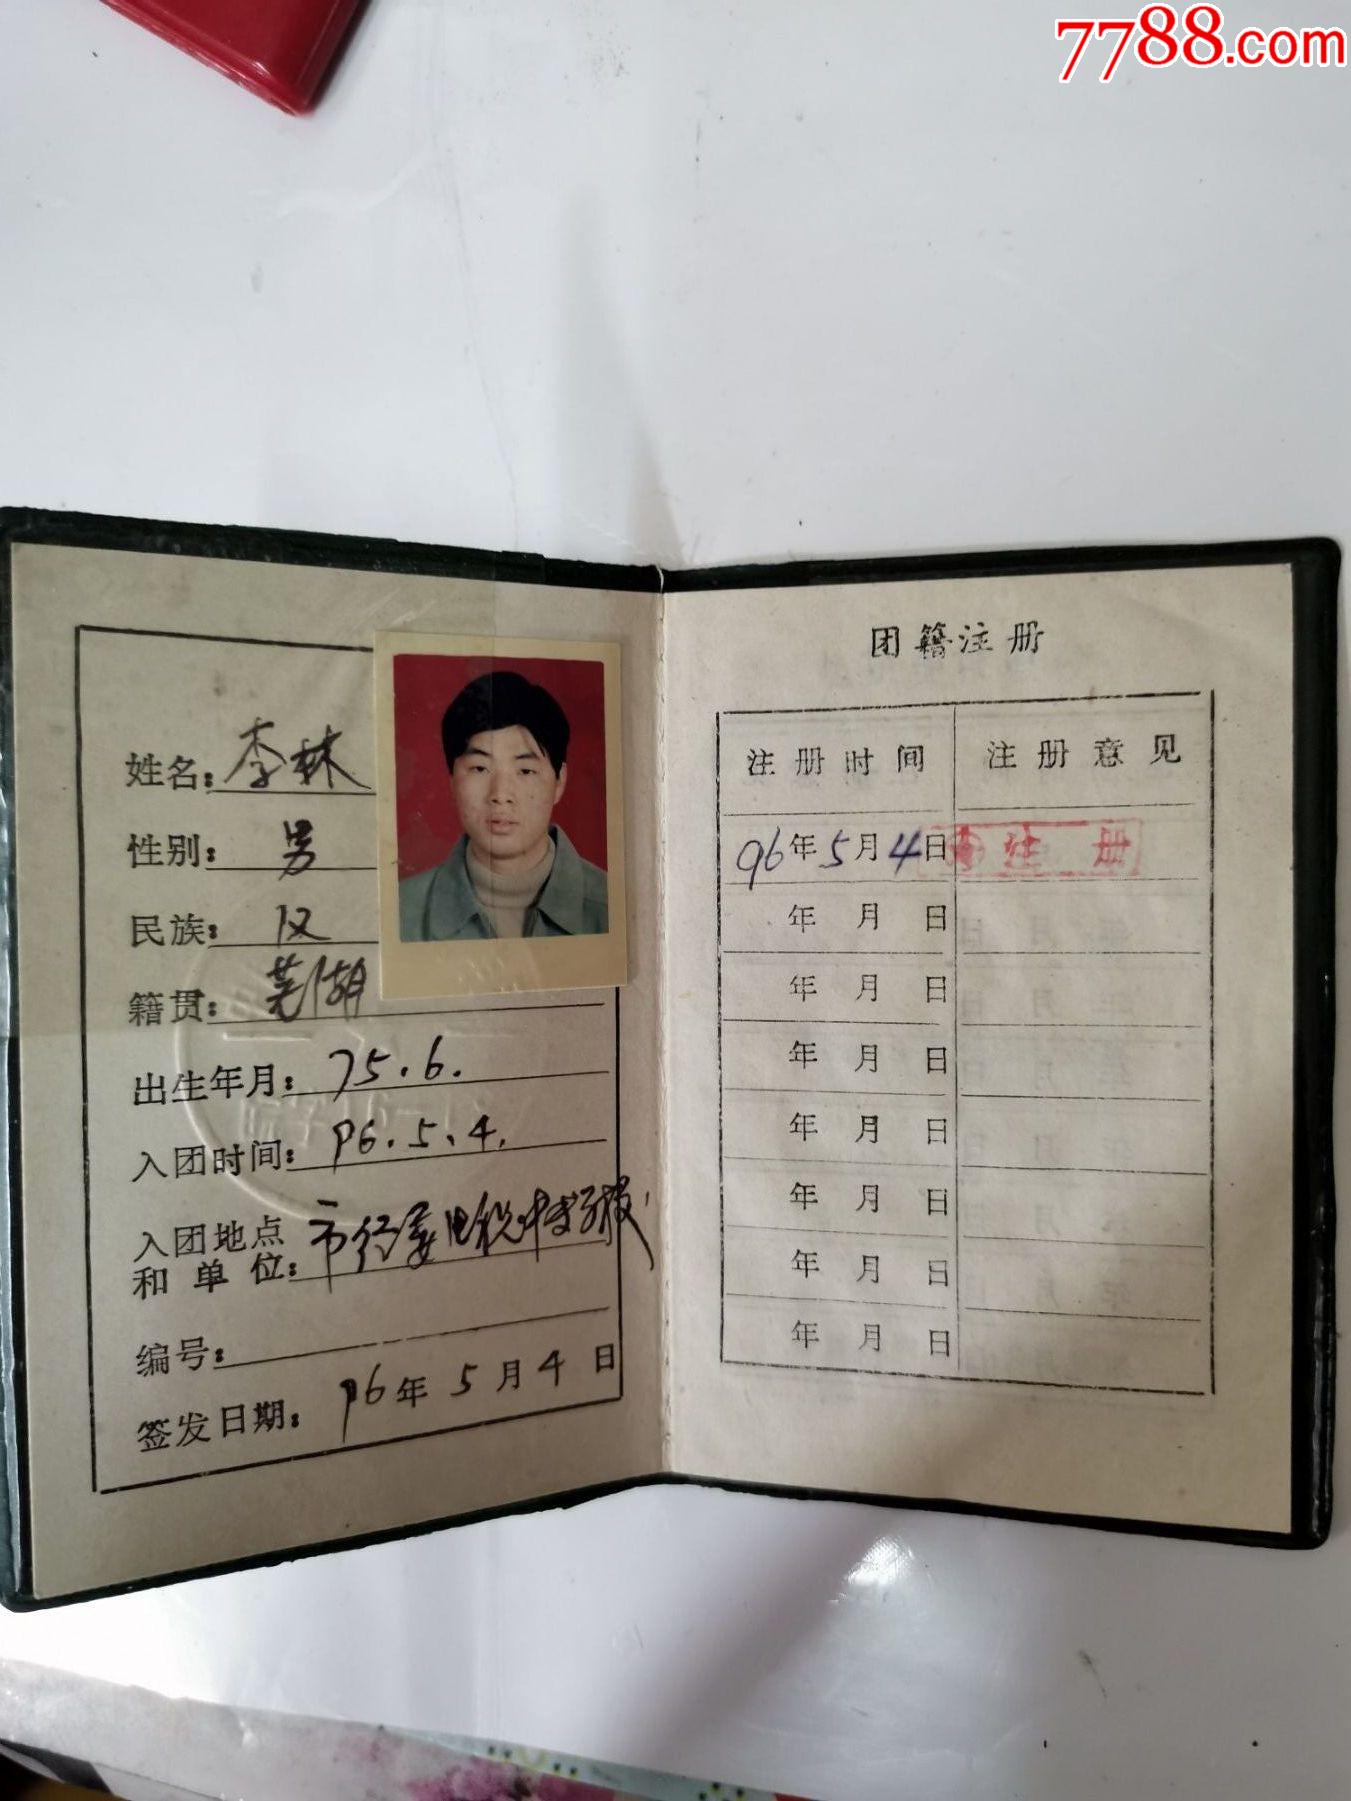 7788.com
姓名：李林
性别：男
民族：汉
籍贯：芜湖
出生年月：75.6.
入团时间：96.5.4.
入团地点
和单位：市经委
编号：
签发日期：96年5月4日
团籍注册
注册时间 注册意见
96年5月4日 注册
年月日
年月日
年月日
年月日
年月日
年月日
年月日